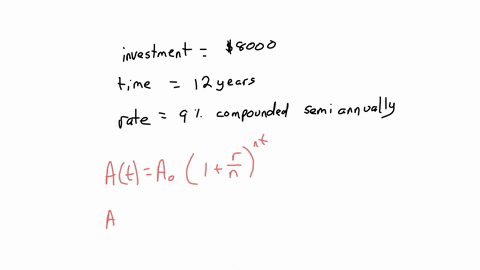 investment = $8000
time = 12 years
rate = 9% compounded semi annually
A(t) = A₀ (1 + r/n)^nt
A